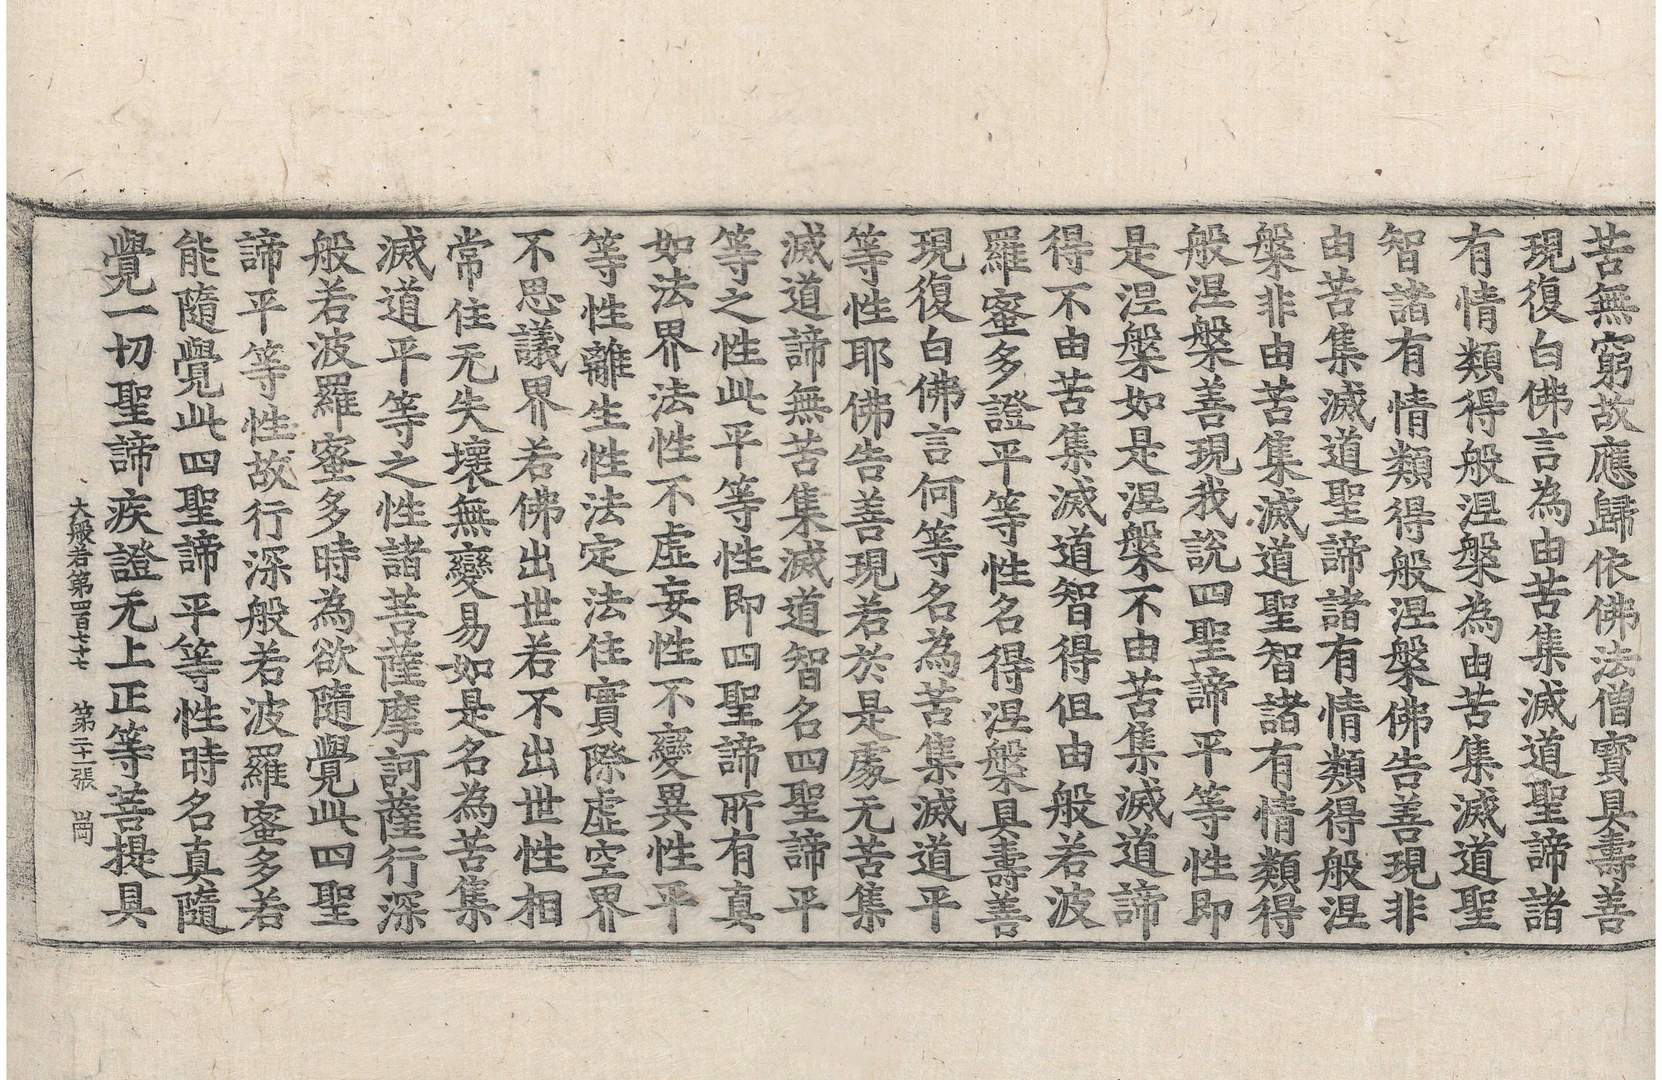 苦無窮故應歸依佛法僧寳具壽善
現復白佛言為由苦集滅道聖諦諸
有情類得般涅槃為由苦集滅道聖
智諸有情類得般涅槃佛告善現非
由苦集滅道聖諦諸有情類得般涅
槃非由苦集滅道聖智諸有情類得
般涅槃善現我說四聖諦平等性即
是涅槃如是涅槃不由苦集滅道諦
得不由苦集滅道智得但由般若波
羅蜜多證平等性名得涅槃具壽善
現復白佛言何等名為苦集滅道平
等性耶佛告善現若於是處无苦集
滅道諦無苦集滅道智名四聖諦平
等之性此平等性即四聖諦所有真
如法界法性不虛妄性不變異性平
等性離生性法定法住實際虛空界
不思議界若佛出世若不出世性相
常住无失壞無變易如是名為苦集
滅道平等之性諸菩薩摩訶薩行深
般若波羅蜜多時為欲隨覺此四聖
諦平等性故行深般若波羅蜜多若
能隨覺此四聖諦平等性時名真隨
覺一切聖諦疾證无上正等菩提具
大般若第四百七十七 第二十張 崗